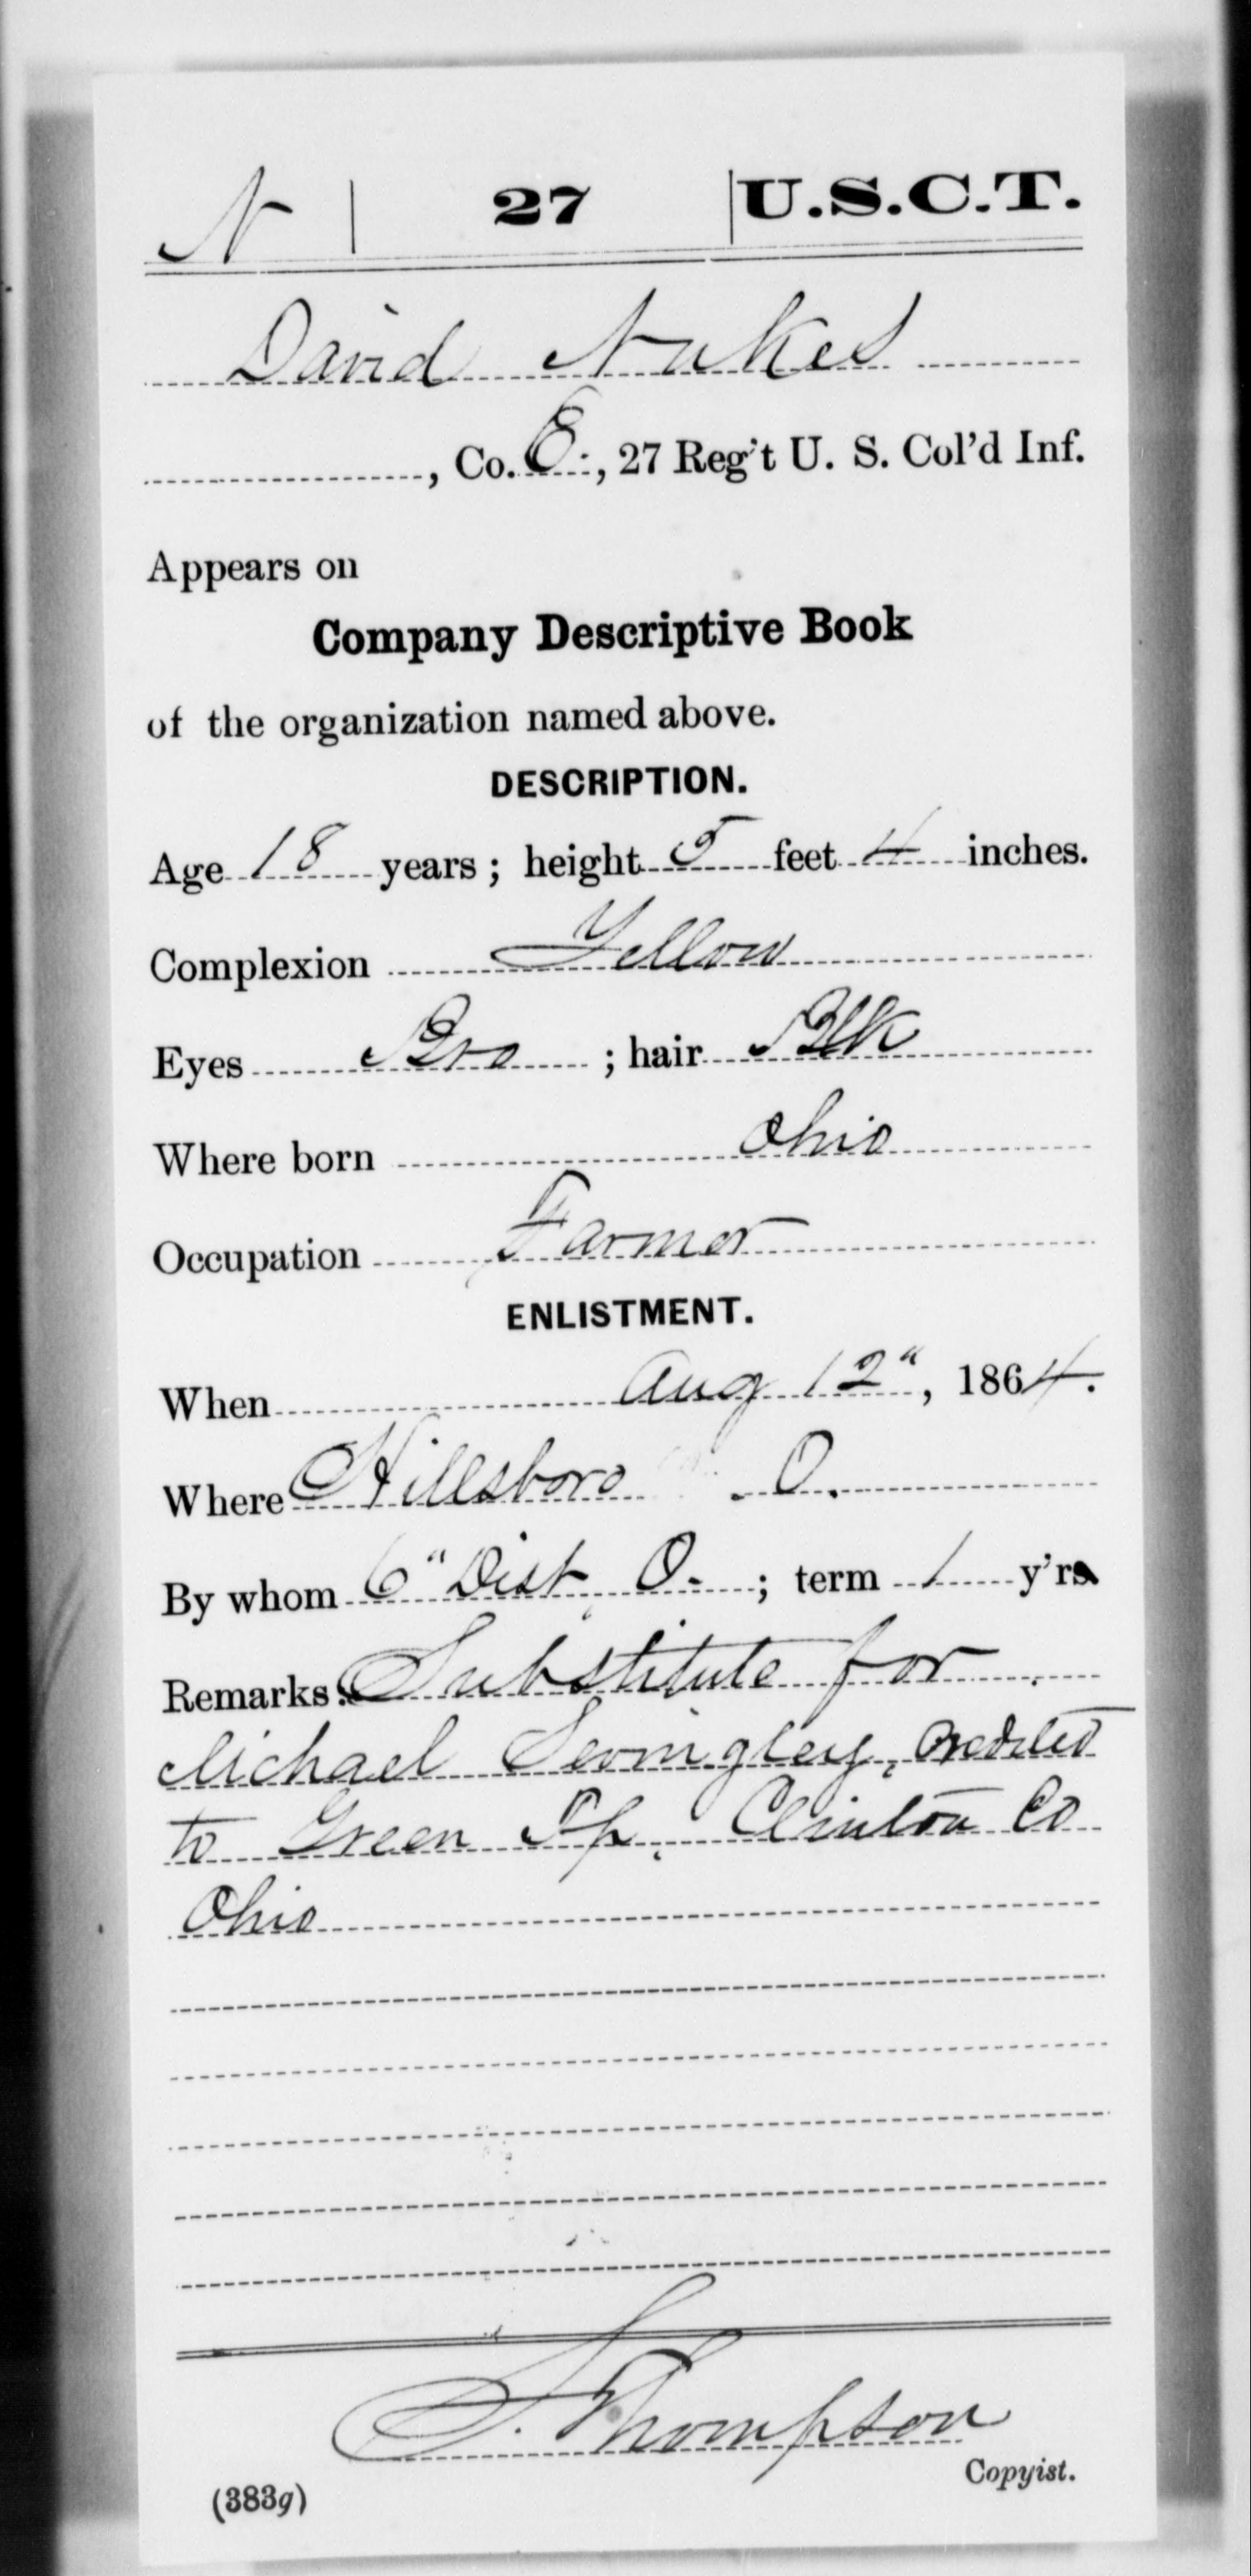 N | 27 | U.S.C.T.
David Nukes
, Co. E, 27 Reg't U. S. Col'd Inf.
Appears on
Company Descriptive Book
of the organization named above.
DESCRIPTION.
Age 18 years; height 5 feet 4 inches.
Complexion Yellow
Eyes Bro ; hair Blk
Where born Ohio
Occupation Farmer
ENLISTMENT.
When Aug 12", 1864.
Where Hillsboro O.
By whom 6" Dist O. ; term 1 y'rs
Remarks: Substitute for
Michael credited
to Green Tp, Clinton Co
Ohio
S. Thompson
Copyist.
(383g)